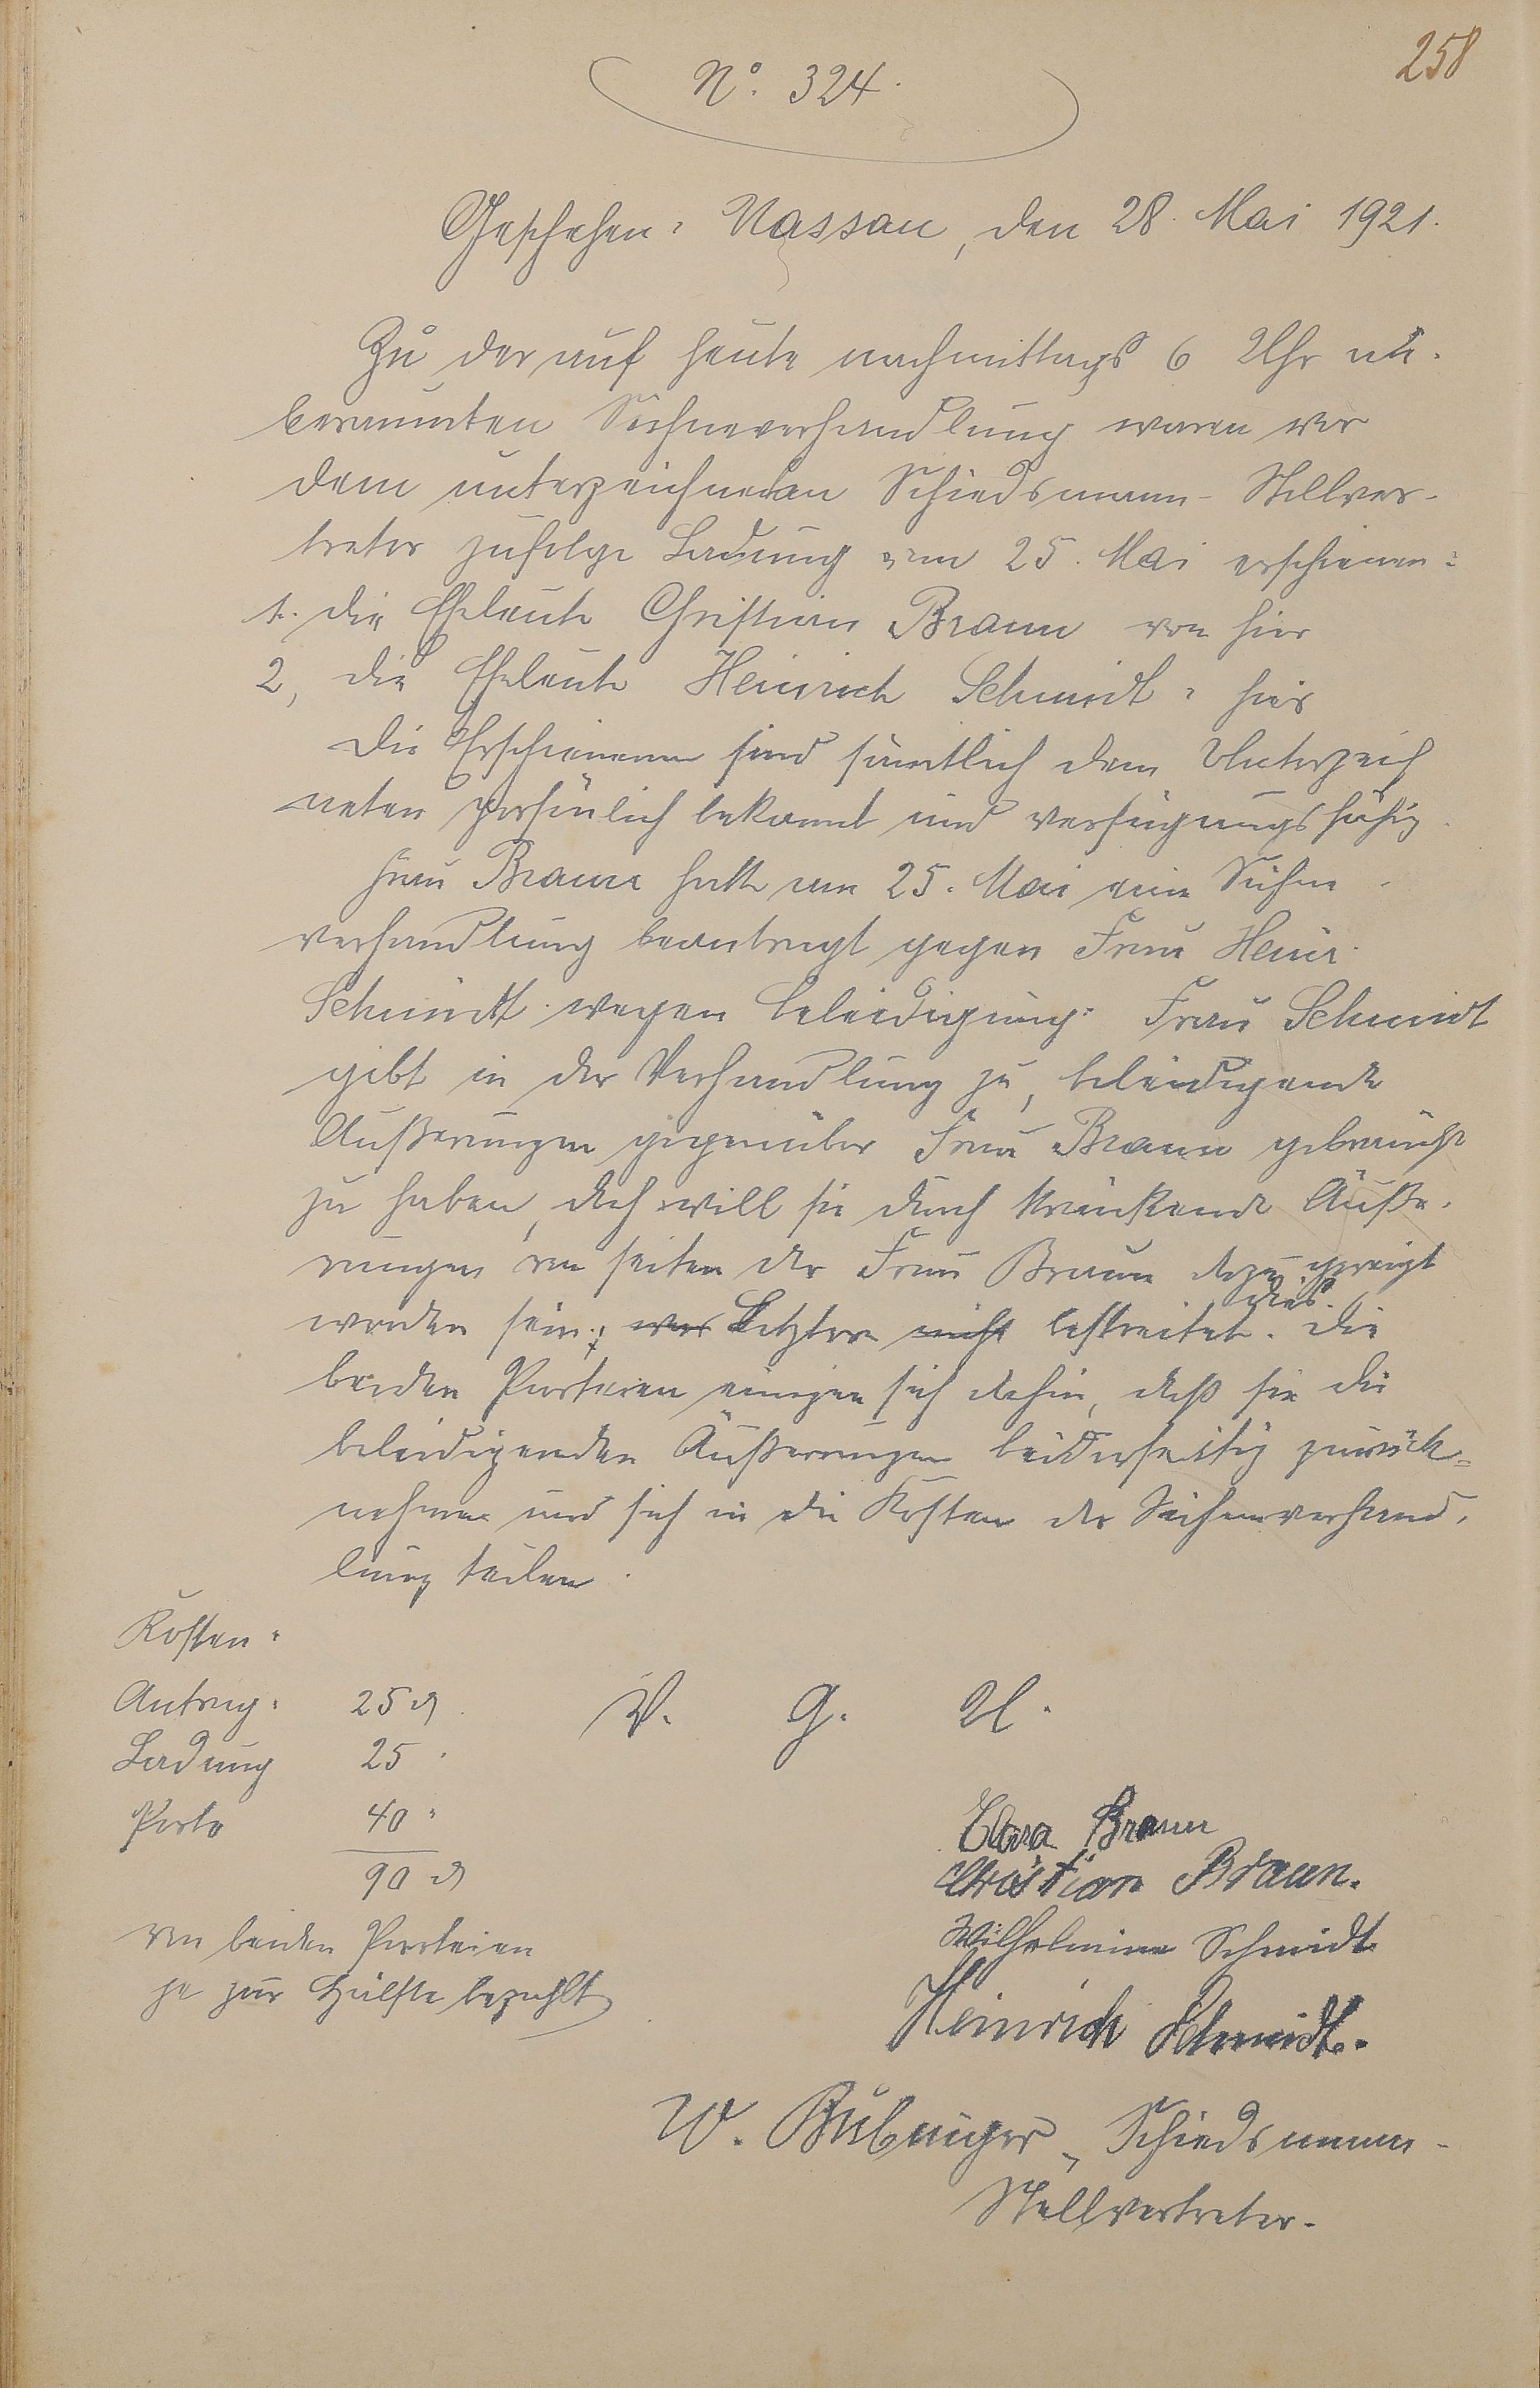 258
No. 324.
Geschehen: Nassau, den 28. Mai 1921.
Zu der auf heute nachmittags 6 Uhr an-
beraumten Sühneverhandlung waren vor
dem unterzeichneten Schiedsmann-Stellver-
treter zufolge Ladung vom 25. Mai erschienen:
1. die Eheleute Christian Braun von hier
2, die Eheleute Heinrich Schmidt " hier
Die Erschienenen sind sämtlich dem Unterzeich
neten persönlich bekannt und verfügungsfähig.
Frau Braun hatte am 25. Mai eine Sühne-
verhandlung beantragt gegen Frau Heinr.
Schmidt wegen Beleidigung. Frau Schmidt
gibt in der Verhandlung zu, beleidigende
Äußerungen gegenüber Frau Braun gebraucht
zu haben, doch will sie durch kränkende Äuße-
rungen von seiten der Frau Braun dazu gereizt
worden sein; was Letztere nicht dies bestreitet. Die
beiden Parteien einigen sich dahin, daß sie die
beleidigenden Äußerungen beiderseitig zurück-
nehmen und sich in die Kosten der Sühneverhand-
lung teilen.
Kosten:
Antrag: 25 ₰
V. G. U.
Ladung 25 "
Porto 40 "
90 ₰
von beiden Parteien
je zur Hälfte bezahlt
Clara Braun
Christian Braun.
Wilhelmine Schmidt
Heinrich Schmidt.
W. Schiedsmann-
Stellvertreter.